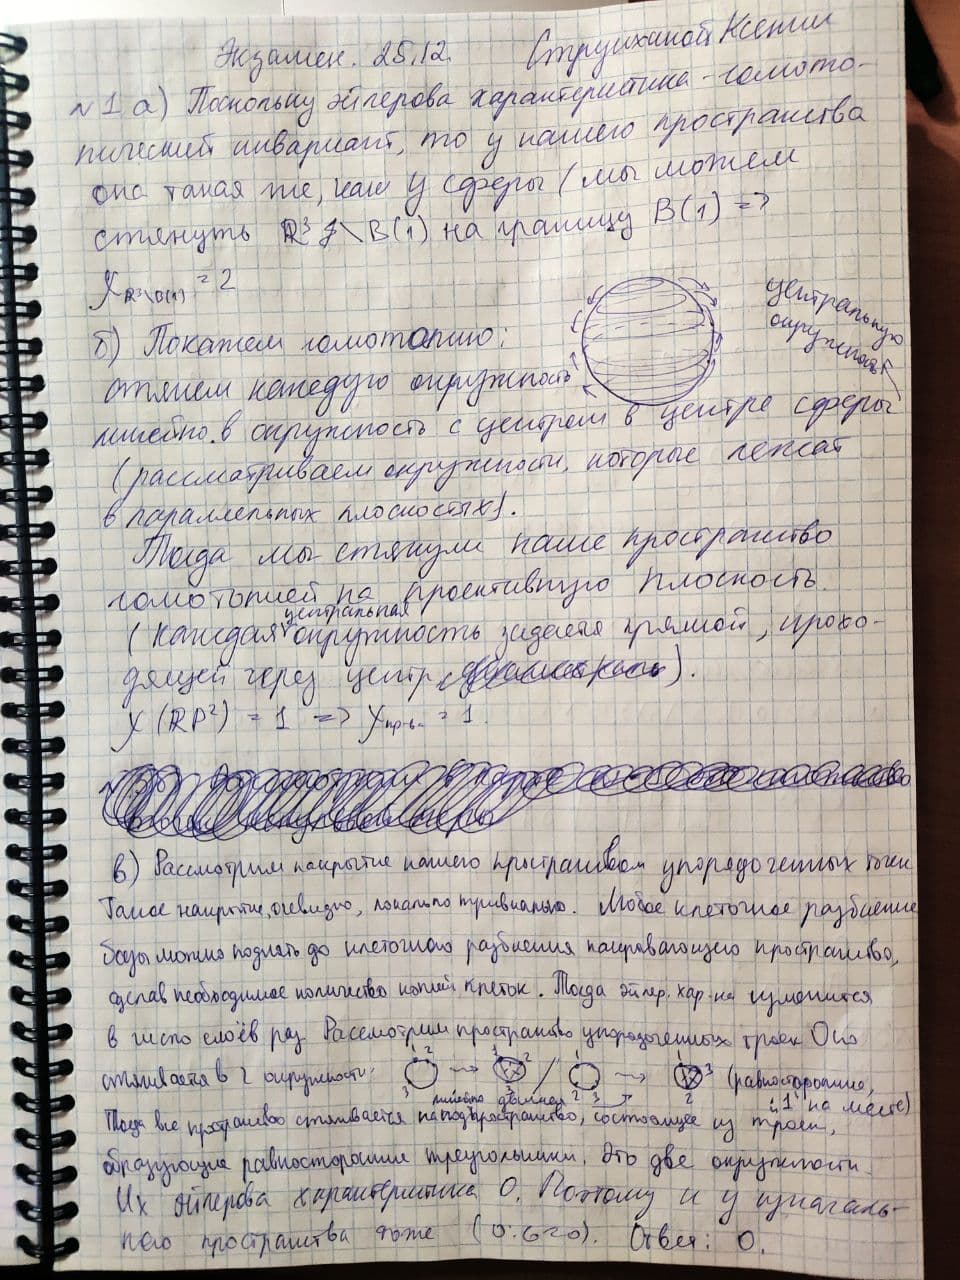 Экзамен. 25.12. Струиханой Ксении
№1 а) Поскольку эйлерова характеристика - гомото-
пический инвариант, то у нашего пространства
она такая же, как у сферы (мы можем
стянуть ℝ³\B(1) на границу B(1) =>
χ_{ℝ³\B(1)} = 2
б) Покажем гомотопию:
стянем каждую окружность
центральную
окружность
линейно в окружность с центром в центре сферы
(рассматриваем окружности, которые лежат
в параллельных плоскостях).
Тогда мы стянули наше пространство
гомотопией на проективную плоскость
(каждая центральная окружность задаётся прямой, прохо-
дящей через центр).
χ(ℝP²) = 1 => χ пр-ва = 1.
в) Рассмотрим накрытие нашего пространством упорядоченных точек
Такое накрытие, очевидно, локально тривиально. Любое клеточное разбиение
базы можно поднять до клеточного разбиения накрывающего пространства,
сделав необходимое количество копий клеток. Тогда эйлер. хар-ка изменится
в число слоёв раз. Рассмотрим пространство упорядоченных троек Оно
стягивается в 2 окружности: 1 2 3 1 2 3 / 1 2 3 1 3 2 (равносторонние,
линейно двигаем и "1" на месте)
Тогда все пространство стягивается на подпространство, состоящее из троек,
образующие равносторонние треугольники. Это две окружности.
Их эйлерова характеристика 0. Поэтому и у изначаль-
ного пространства тоже (0:6=0). Ответ: 0.